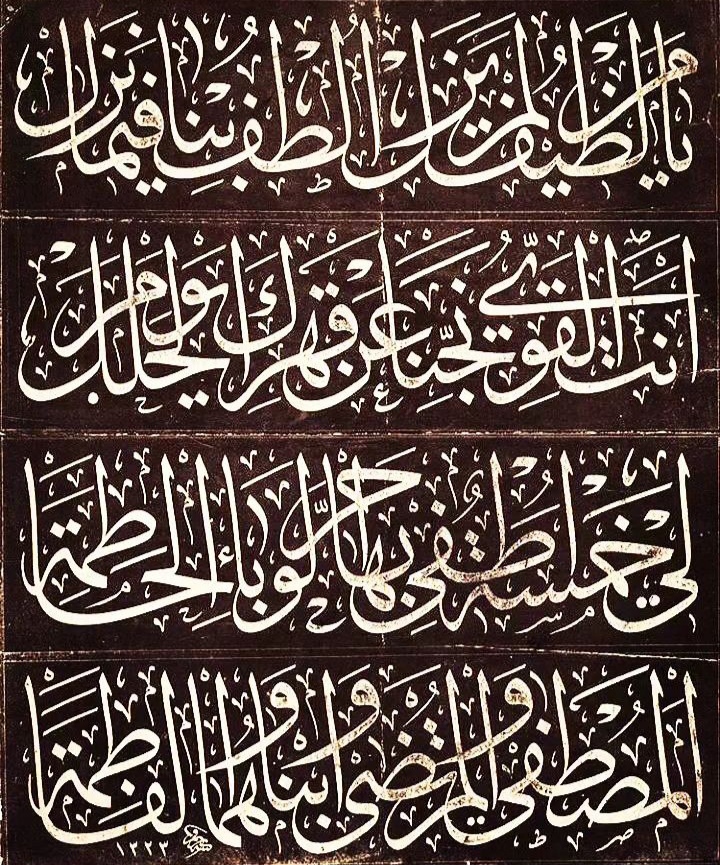 يا من لطيف لم يزل الطف بنا فيما نزل
انت القوي نجّنا عن قهرك يوم الخلل
لي خمسة اطفي بها حرّ الوباء الحاطمة
المصطفى والمرتضى وابناهما والفاطمة